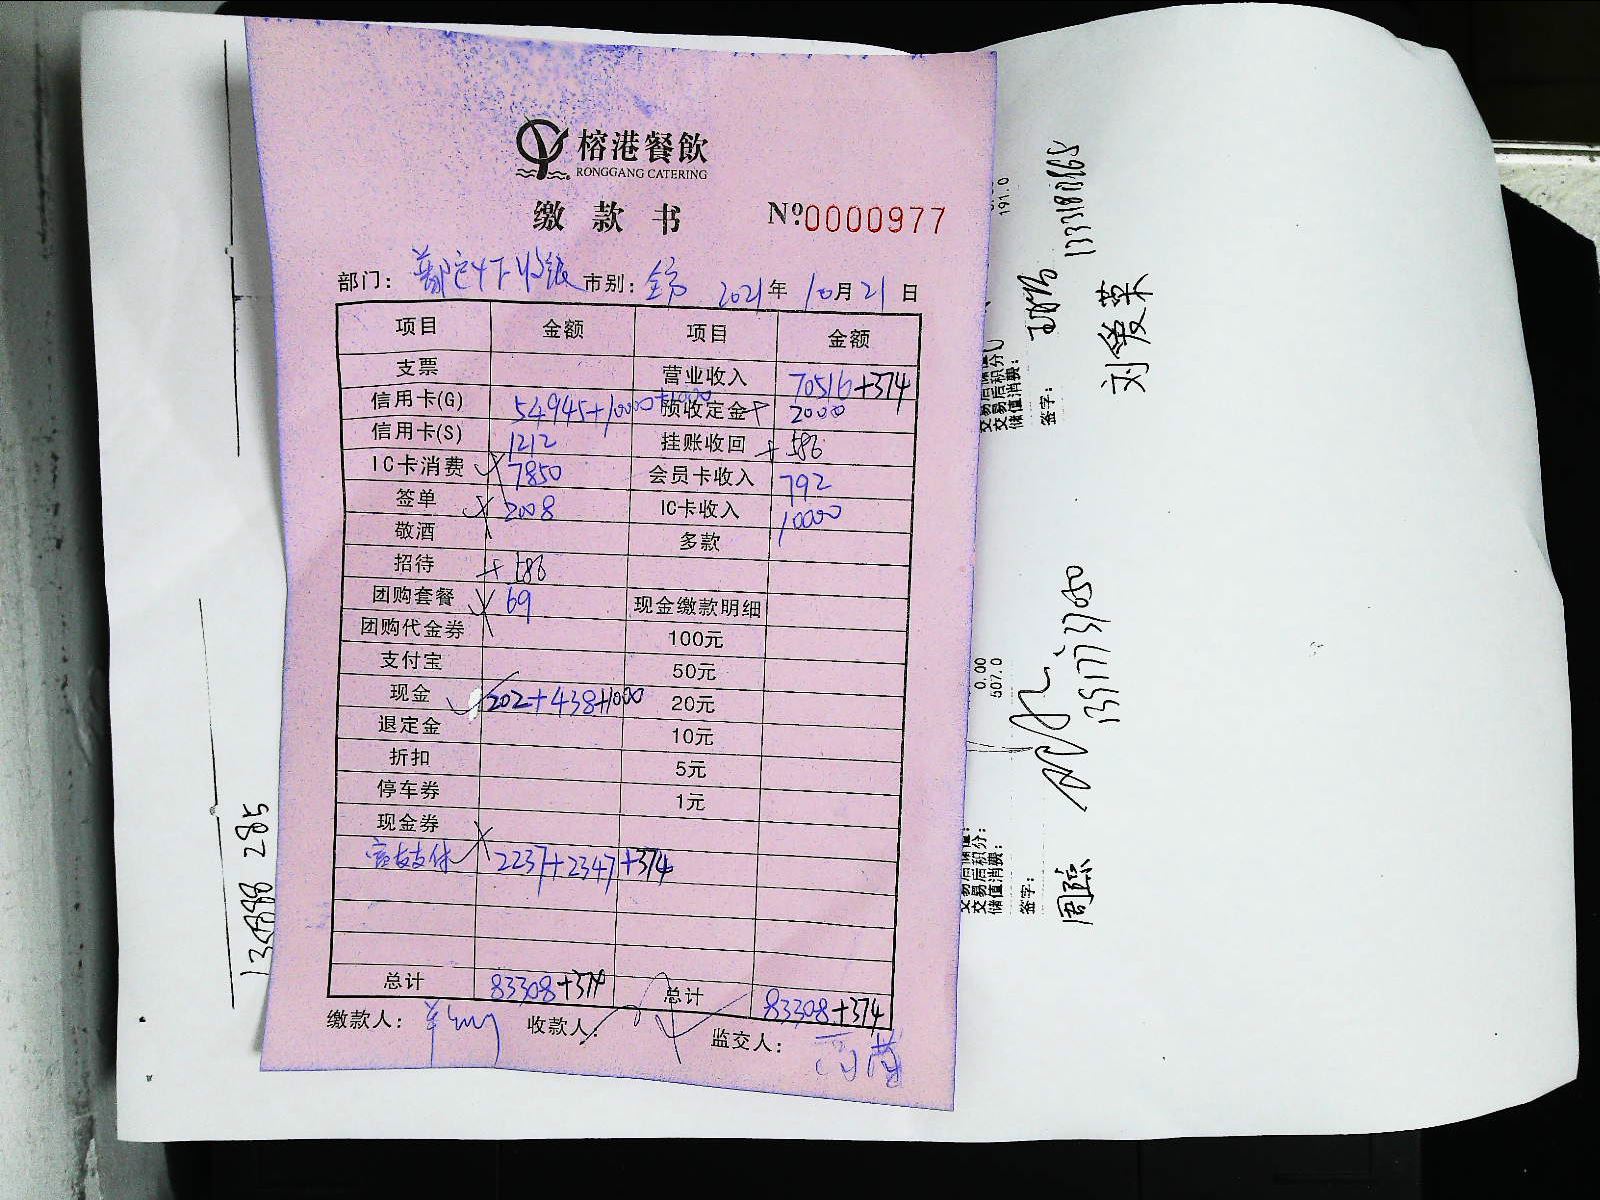 榕港餐飲
RONGGANG CATERING
缴 款 书 Nº0000977
部门： 市别： 2021年 10月21日
项目 金额 项目 金额
支票 营业收入 70516+374
信用卡(G) 54945+10000+1000 预收定金 2000
信用卡(S) 1212 挂账收回
IC卡消费 7850 会员卡收入 792
签单 2008 IC卡收入 10000
敬酒 多款
招待
团购套餐 69 现金缴款明细
团购代金券 100元
支付宝 50元
现金 202+438+1000 20元
退定金 10元
折扣 5元
停车券 1元
现金券
2237+2347+374
总计 83308+374 总计 83308+374
缴款人： 收款人： 监交人：
191.0
交易后积分
储值消费：
签字：
刘爱菜
0.00
607.0
交易后积分：
储值消费：
签字：
周琼